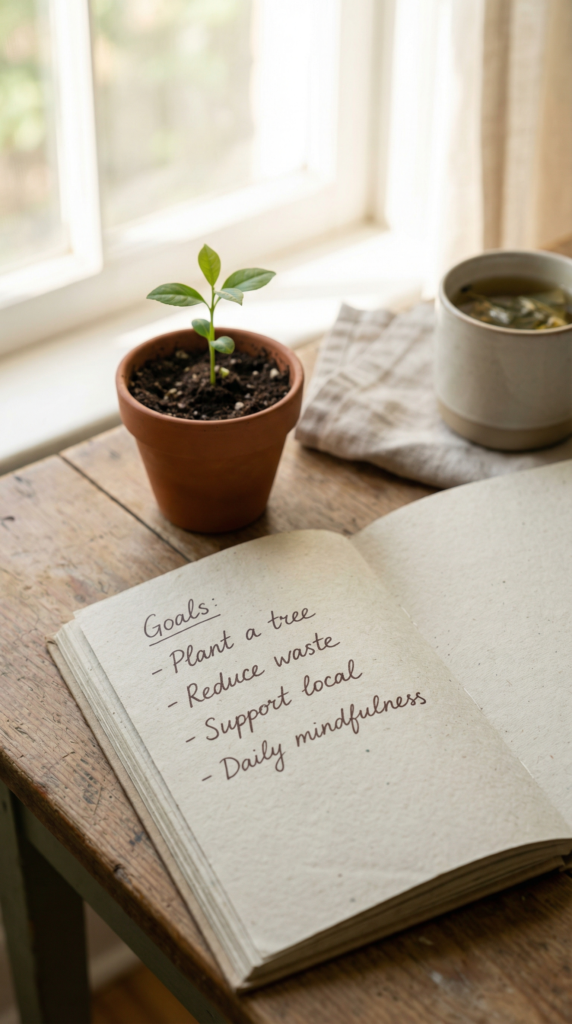 Goals:
- Plant a tree
- Reduce waste
- Support local
- Daily mindfulness